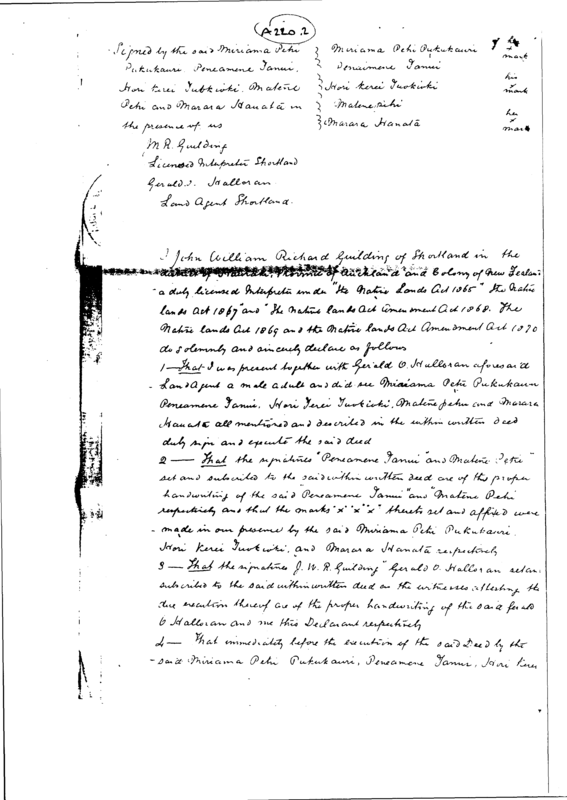 A220.2
Signed by the said Miriama Pehi } Miriama Pehi Pukukauri x her mark
Pukukauri. Peneamene Tanui. } Peneamene Tanui
Hori Kerei Tuokioki. Matene } Hori Kerei Tuokioki his x mark
Pehi and Marara Hanatā in } Matene Pehi
the presence of us } Marara Hanatā her x mark
M.R. Guilding
Licensed Interpreter Shortland
Gerald O. Halloran
Land Agent Shortland.
I John William Richard Guilding of Shortland in the
Province of Auckland and Colony of New Zealand
a duly licensed Interpreter under "the Native Lands Act 1865" the Native
lands act 1867" and "the Native lands Act Amendment Act 1868. The
Native lands Act 1869 and the Native lands Act Amendment Act 1870
do solemnly and sincerely declare as follows
1 — That I was present together with Gerald O. Halloran aforesaid
Land Agent a male adult and did see Miriama Pehi Pukukauri
Peneamene Tanui. Hori Kerei Tuokioki. Matene pehu and Marara
Hanatā all mentioned and described in the within written deed
duly sign and execute the said deed
2 — That the signatures "Peneamene Tanui" and Matene Pehi"
set and subscribed to the said within written deed are of the proper
handwriting of the said "Peneamene Tanui" and "Matene Pehi
respectively and that the marks "x" "x" "x" thereto set and affixed were
made in our presence by the said Miriama Pehi Pukukauri.
Hori Kerei Tuokioki. and Marara Hanatā respectively
3 — That the signatures J. W. R. Guilding" Gerald O. Halloran set and
subscribed to the said within written deed as the witnesses attesting the
due execution thereof are of the proper handwriting of the said Gerald
O Halloran and me this Declarant respectively
4 — That immediately before the execution of the said Deed by the
said Miriama Pehi Pukukauri, Peneamene Tanui, Hori Kerei